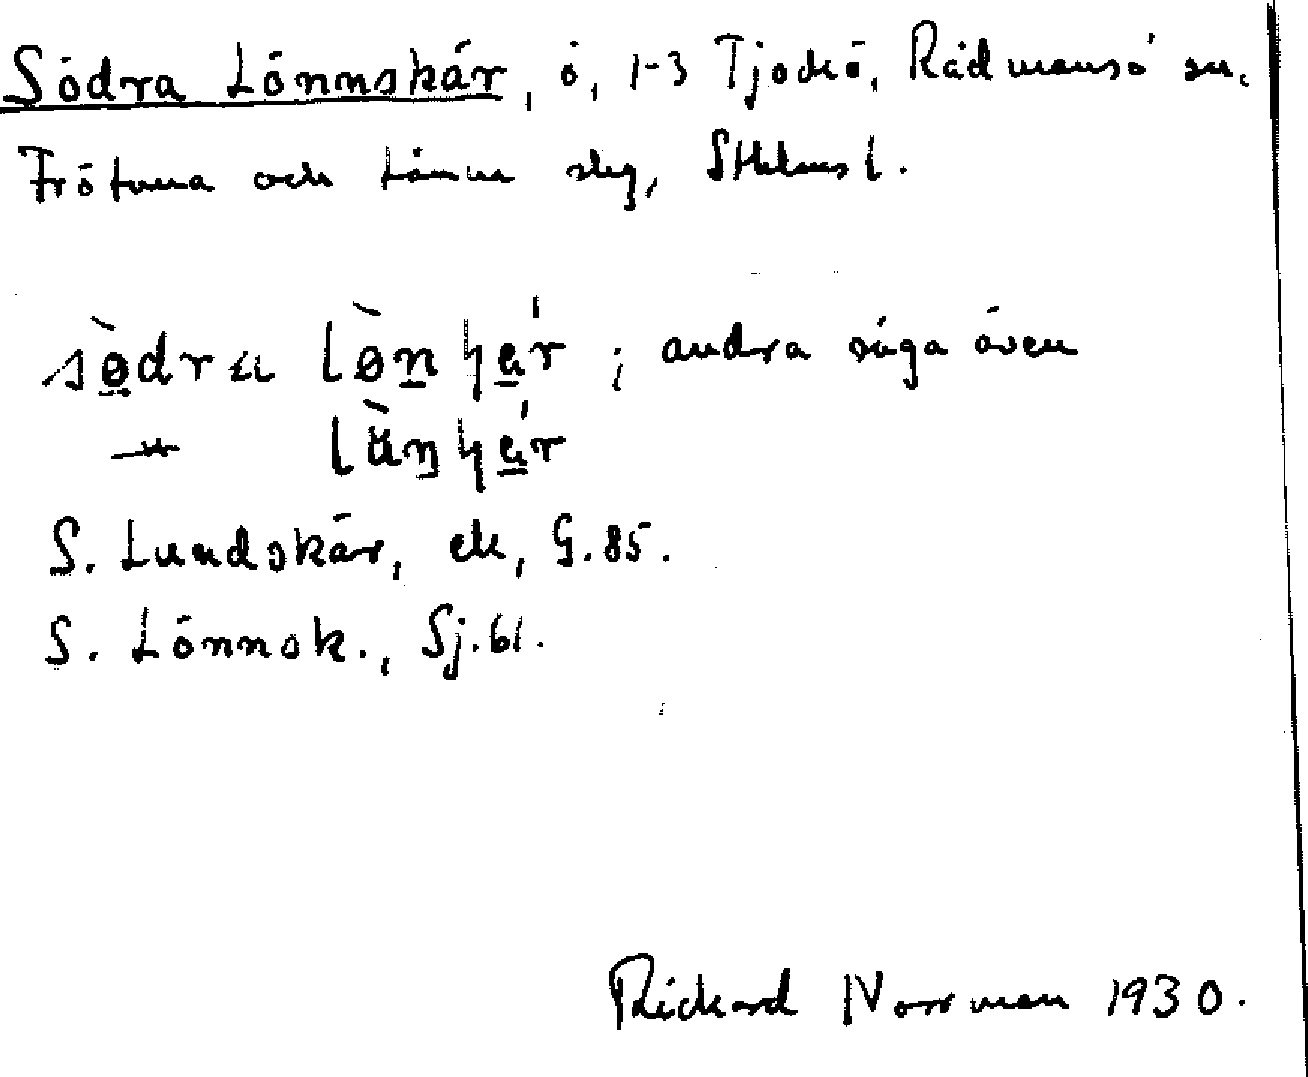 Södra Lönnskär, ö, 1-3 Tjockö, Rådmansö sn.
Frötuna och Länna slg, Sthlms l.
sødra lønʂär ; andra säga även
–"– lüŋʂär
S. Lundskär, ek, G.85.
S. Lönnsk., Sj.61.
Rickard Norrman 1930.